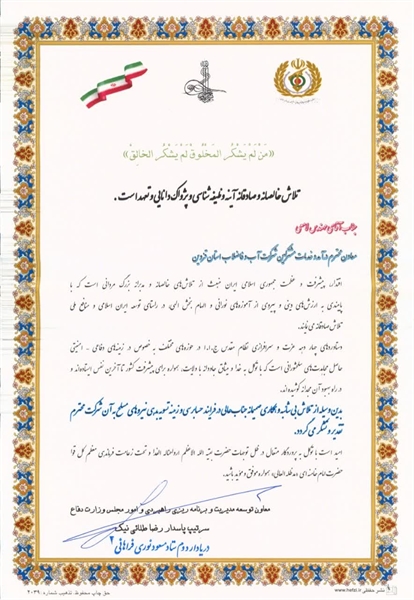 «مَنْ لَمْ يَشْكُرِ الْمَخْلُوقْ لَمْ يَشْكُرِ الْخَالِقْ»
تلاش خالصانه و صادقانه آینه وظیفه شناسی و پژواک دانایی و تعهد است.
جناب آقای مهندس
معاون محترم درآمد و خدمات مشترکین شرکت آب و فاضلاب استان قزوین
اقتدار، پیشرفت و عظمت جمهوری اسلامی ایران منبعث از تلاش‌های خالصانه و مدبرانه بزرگ مردانی است که با
پایبندی به ارزش‌های دینی و پیروی از آموزه‌های نورانی و الهام بخش الهی، در راستای توسعه ایران اسلامی و منافع ملی
تلاش صادقانه می‌نمایند.
دستاوردهای چهار دهه عزت و سرافرازی نظام مقدس ج.ا.ا در حوزه‌های مختلف به خصوص در زمینه‌های دفاعی - امنیتی
حاصل مجاهدت‌های سلحشورانی است که با توکل به خدا و میثاق جاودانه با ولایت، همواره برای پیشرفت کشور تا آخرین نفس ایستاده‌اند و
در راه بهبود آن مجدانه کوشیده‌اند.
بدین وسیله از تلاش بی شائبه و همکاری صمیمانه جنابعالی در فرایند حسابرسی و زمینه تسویه بدهی نیروهای مسلح به آن شرکت محترم
تقدیر و تشکر می گردد.
امید است با توکل به پروردگار متعال در ظل توجهات حضرت بقیه الله الاعظم ارواحنا له الفدا و تحت زعامت فرماندهی معظم کل قوا
حضرت امام خامنه ای مدظله العالی، همواره موفق و مؤید باشید.
معاون توسعه مدیریت و برنامه ریزی راهبردی و امور مجلس وزارت دفاع
سرتیپ پاسدار رضا طلائی نیک
دریادار دوم ستاد مسعود نوری فراهانی
حق چاپ محفوظ. تذهیب شماره: ۲۰۳۹
نشر حفظی www.hefzi.ir